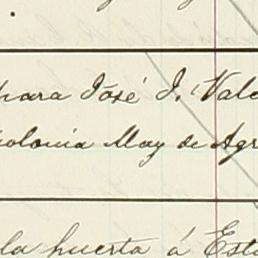 para José I. Vale
colonia May de Agr
la huerta á Esta